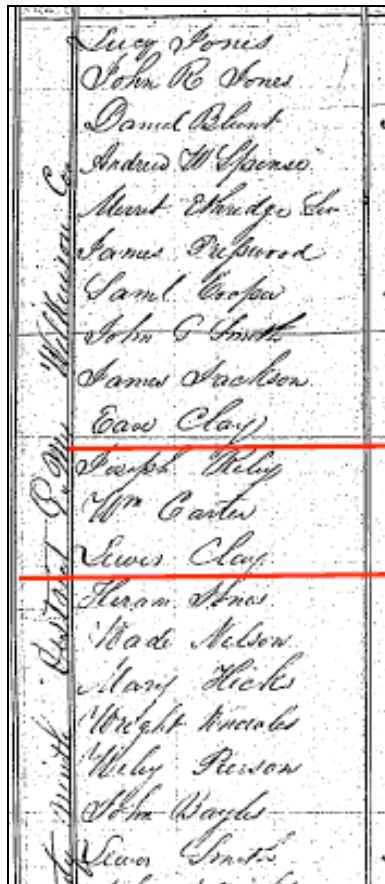 Lucy Jones
John R Jones
Daniel Blunt
Andrew W Spense
Merret Ethridge Sen
James Presswood
Saml Cooper
John G Smith
James Jackson
Eave Clay
Joseph Riley
Wm Carter
Lewis Clay
Hiram Jones
Wade Nelson
Mary Hicks
Wright
Wiley Pierson
John Bayles
Lewis Smith
ninth District G.M. Wilkinson Co